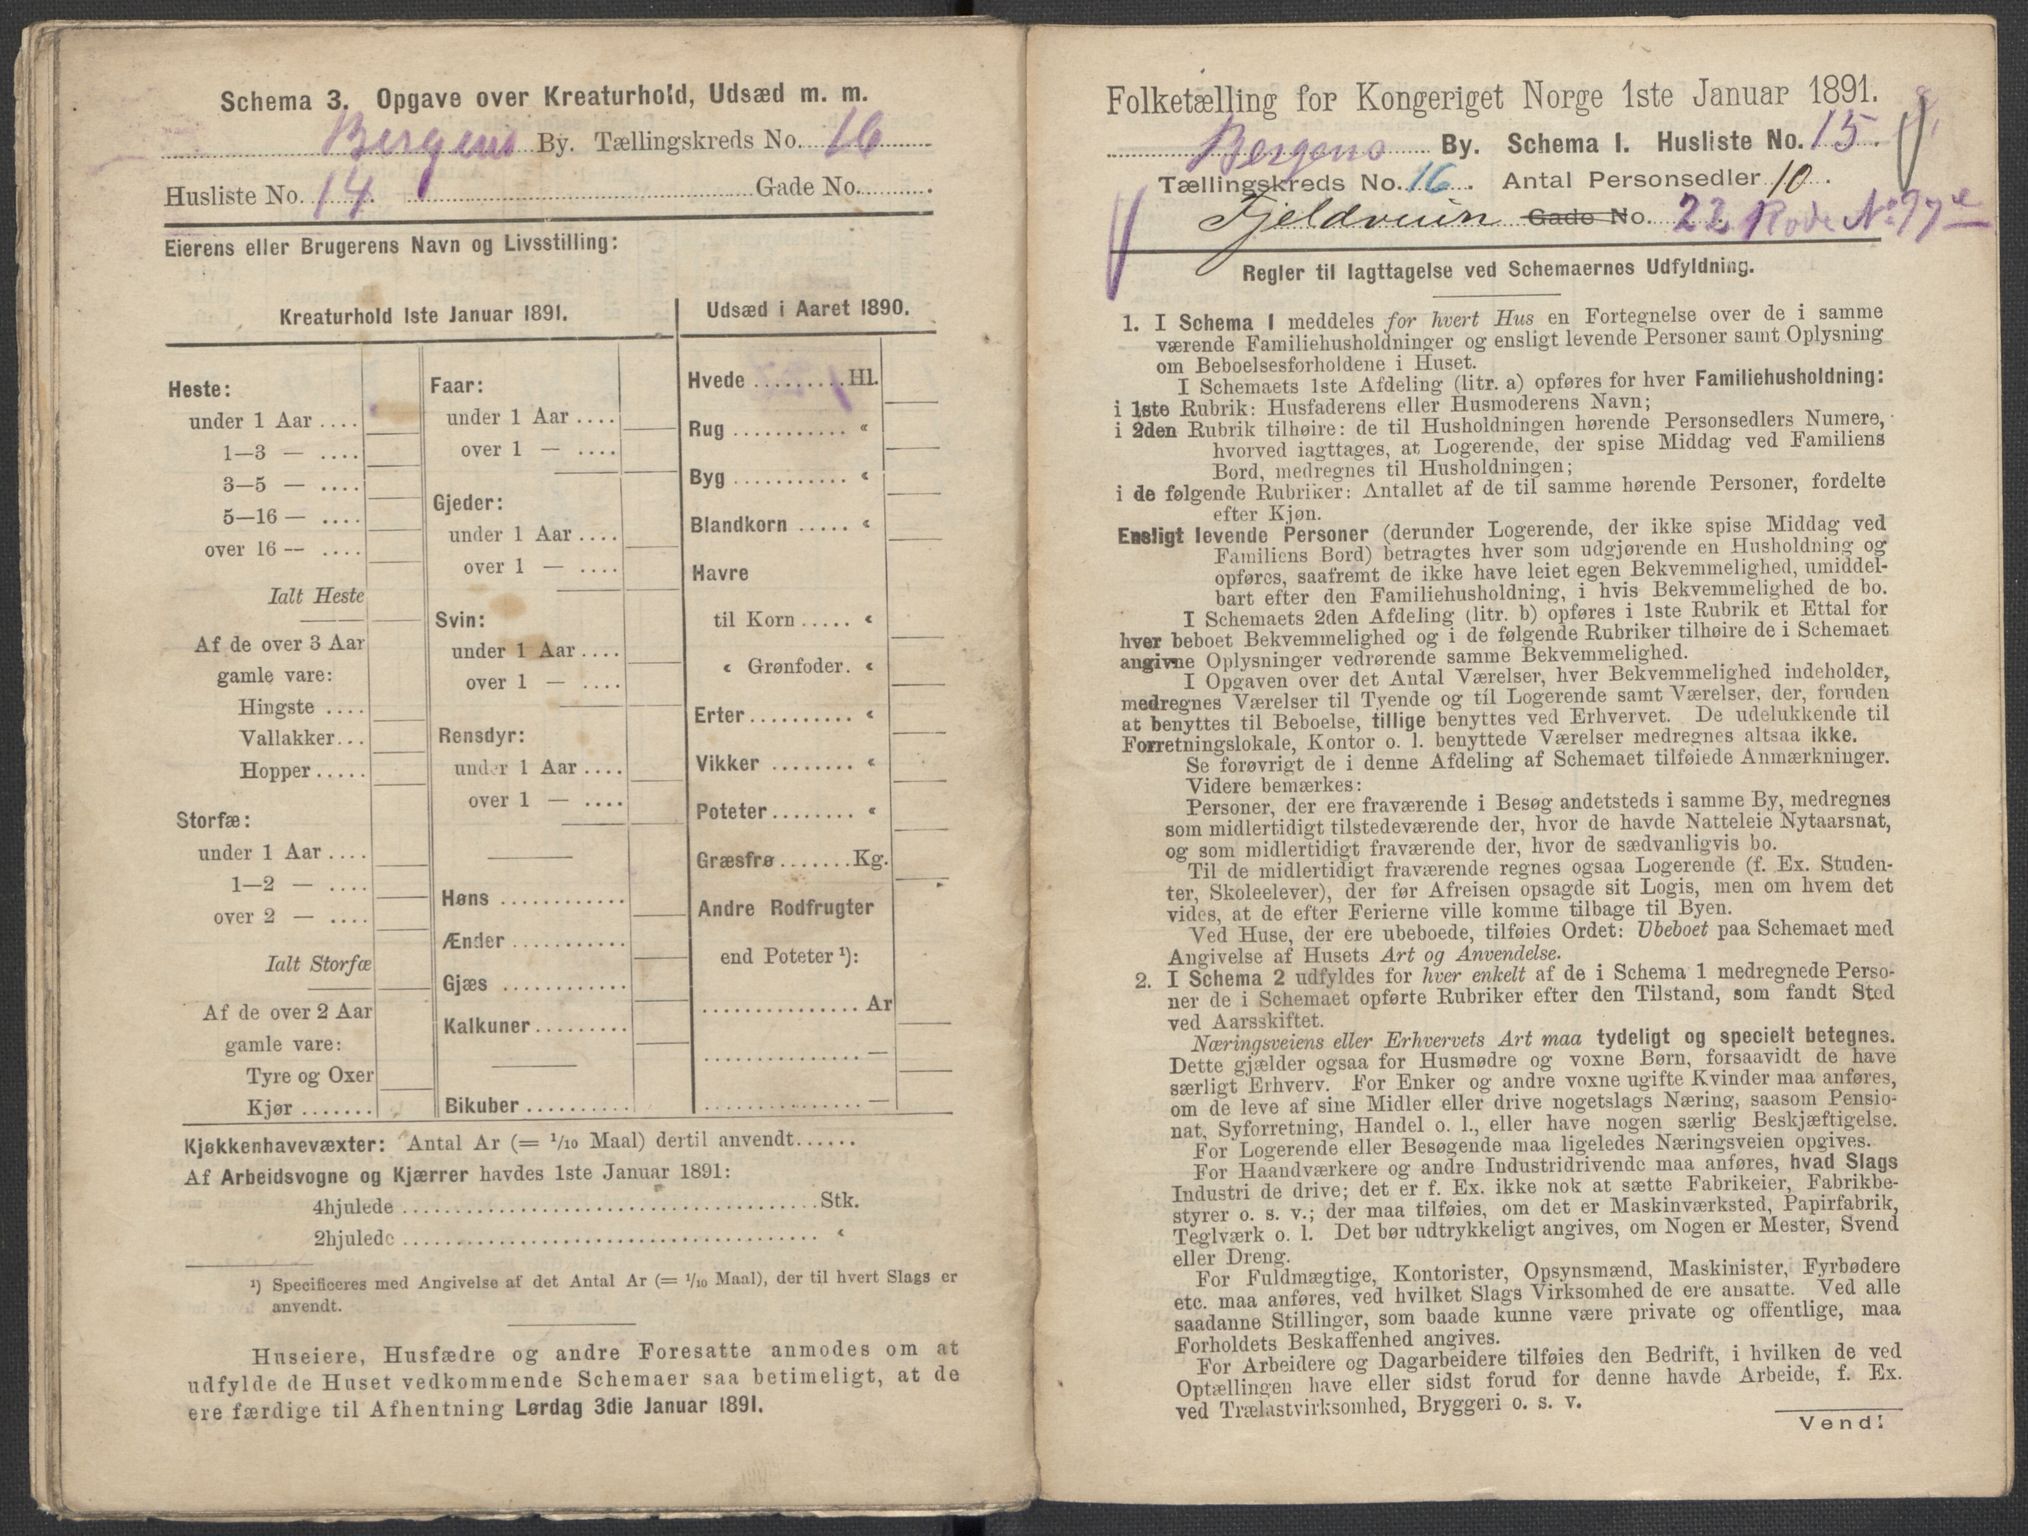 Schema 3. Opgave over Kreaturhold, Udsæd m. m.
Bergens By. Tællingskreds No. 16
Husliste No. 14. Gade No.
Eierens eller Brugerens Navn og Livsstilling:
Kreaturhold 1ste Januar 1891.
Heste:
under 1 Aar
1—3 —
3—5 —
5—16 —
over 16 —
Ialt Heste
Af de over 3 Aar
gamle vare:
Hingste
Vallakker
Hopper
Storfæ:
under 1 Aar
1—2 —
over 2 —
Ialt Storfæ
Af de over 2 Aar
gamle vare:
Tyre og Oxer
Kjør
Faar:
under 1 Aar
over 1 —
Gjeder:
under 1 Aar
over 1 —
Svin:
under 1 Aar
over 1 —
Rensdyr:
under 1 Aar
over 1 —
Høns
Ænder
Gjæs
Kalkuner
Bikuber
Udsæd i Aaret 1890.
Hvede Hl.
Rug «
Byg «
Blandkorn «
Havre
til Korn «
« Grønfoder. «
Erter «
Vikker «
Poteter «
Græsfrø Kg.
Andre Rodfrugter
end Poteter ¹):
Ar
—
—
Kjøkkenhavevæxter: Antal Ar (= 1/10 Maal) dertil anvendt
Af Arbeidsvogne og Kjærrer havdes 1ste Januar 1891:
4hjulede Stk.
2hjulede «
¹) Specificeres med Angivelse af det Antal Ar (= 1/10 Maal), der til hvert Slags er
anvendt.
Huseiere, Husfædre og andre Foresatte anmodes om at
udfylde de Huset vedkommende Schemaer saa betimeligt, at de
ere færdige til Afhentning Lørdag 3die Januar 1891.
Folketælling for Kongeriget Norge 1ste Januar 1891.
Bergens By. Schema I. Husliste No. 15.
Tællingskreds No. 16. Antal Personsedler 10.
Fjeldveien Gade No. 22 Rode No 77
Regler til Iagttagelse ved Schemaernes Udfyldning.
1. I Schema 1 meddeles for hvert Hus en Fortegnelse over de i samme
værende Familiehusholdninger og ensligt levende Personer samt Oplysning
om Beboelsesforholdene i Huset.
I Schemaets 1ste Afdeling (litr. a) opføres for hver Familiehusholdning:
i 1ste Rubrik: Husfaderens eller Husmoderens Navn;
i 2den Rubrik tilhøire: de til Husholdningen hørende Personsedlers Numere,
hvorved iagttages, at Logerende, der spise Middag ved Familiens
Bord, medregnes til Husholdningen;
i de følgende Rubriker: Antallet af de til samme hørende Personer, fordelte
efter Kjøn.
Ensligt levende Personer (derunder Logerende, der ikke spise Middag ved
Familiens Bord) betragtes hver som udgjørende en Husholdning og
opføres, saafremt de ikke have leiet egen Bekvemmelighed, umiddel-
bart efter den Familiehusholdning, i hvis Bekvemmelighed de bo.
I Schemaets 2den Afdeling (litr. b) opføres i 1ste Rubrik et Ettal for
hver beboet Bekvemmelighed og i de følgende Rubriker tilhøire de i Schemaet
angivne Oplysninger vedrørende samme Bekvemmelighed.
I Opgaven over det Antal Værelser, hver Bekvemmelighed indeholder,
medregnes Værelser til Tyende og til Logerende samt Værelser, der, foruden
at benyttes til Beboelse, tillige benyttes ved Erhvervet. De udelukkende til
Forretningslokale, Kontor o. l. benyttede Værelser medregnes altsaa ikke.
Se forøvrigt de i denne Afdeling af Schemaet tilføiede Anmærkninger.
Videre bemærkes:
Personer, der ere fraværende i Besøg andetsteds i samme By, medregnes
som midlertidigt tilstedeværende der, hvor de havde Natteleie Nytaarsnat,
og som midlertidigt fraværende der, hvor de sædvanligvis bo.
Til de midlertidigt fraværende regnes ogsaa Logerende (f. Ex. Studen-
ter, Skoleelever), der før Afreisen opsagde sit Logis, men om hvem det
vides, at de efter Ferierne ville komme tilbage til Byen.
Ved Huse, der ere ubeboede, tilføies Ordet: Ubeboet paa Schemaet med
Angivelse af Husets Art og Anvendelse.
2. I Schema 2 udfyldes for hver enkelt af de i Schema 1 medregnede Perso-
ner de i Schemaet opførte Rubriker efter den Tilstand, som fandt Sted
ved Aarsskiftet.
Næringsveiens eller Erhvervets Art maa tydeligt og specielt betegnes.
Dette gjælder ogsaa for Husmødre og voxne Børn, forsaavidt de have
særligt Erhverv. For Enker og andre voxne ugifte Kvinder maa anføres,
om de leve af sine Midler eller drive nogetslags Næring, saasom Pensio-
nat, Syforretning, Handel o. l., eller have nogen særlig Beskjæftigelse.
For Logerende eller Besøgende maa ligeledes Næringsveien opgives.
For Haandværkere og andre Industridrivende maa anføres, hvad Slags
Industri de drive; det er f. Ex. ikke nok at sætte Fabrikeier, Fabrikbe-
styrer o. s. v.; der maa tilføies, om det er Maskinværksted, Papirfabrik,
Teglværk o. l. Det bør udtrykkeligt angives, om Nogen er Mester, Svend
eller Dreng.
For Fuldmægtige, Kontorister, Opsynsmænd, Maskinister, Fyrbødere
etc. maa anføres, ved hvilket Slags Virksomhed de ere ansatte. Ved alle
saadanne Stillinger, som baade kunne være private og offentlige, maa
Forholdets Beskaffenhed angives.
For Arbeidere og Dagarbeidere tilføies den Bedrift, i hvilken de ved
Optællingen have eller sidst forud for denne havde Arbeide, f. Ex.
ved Trælastvirksomhed, Bryggeri o. s. v.
Vend!